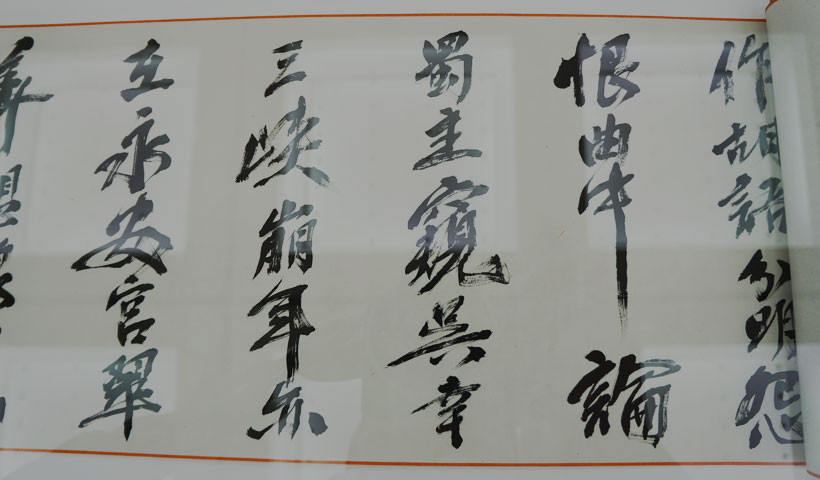 作胡語分明怨
恨曲中論
蜀主窺吳幸
三峽崩年亦
在永安宮翠
華